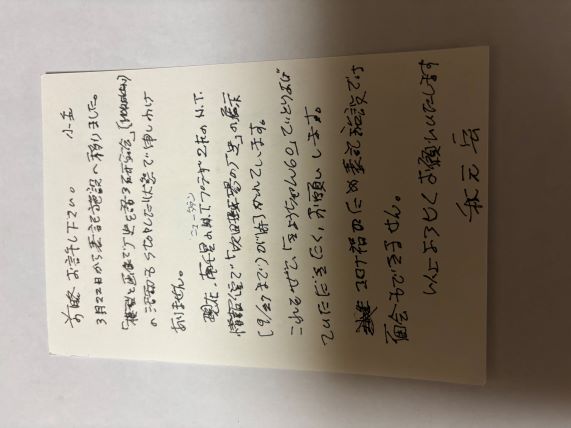 前略 お許し下さい。
3月22日から表記施設へ移りました。
「模型と画像で歴史を語る研究会」
の活動も 状態で申しわけ
ありません。
ニュータウン
現在、南千里のN.T.プラザ2Fの N.T.
情報館で「吹田 の歴史」の展示
(9/27まで)が開かれています。
これもぜひ、「きょうちゃん60」でとりあげ
ていただきたく、お願いします。
コロナ禍のため表記施設では
面会もできません。
以上よろしくお願いいたします
秋元 岳